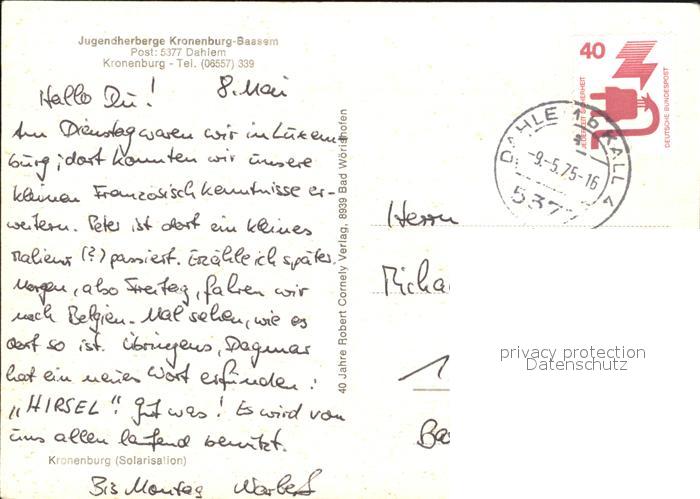 Jugendherberge Kronenburg-Baasem
Post: 5377 Dahlem
Kronenburg - Tel. (06557) 339
Hallo Du! 8. Mai
Am Dienstag waren wir in Luxem-
burg; dort konnten wir unsere
kleinen Französischkenntnisse er-
weitern. Peter ist dort ein kleines
Malieur (?) passiert. Erzähle ich später.
Morgen, also Freitag, fahren wir
nach Belgien. Mal sehen, wie es
dort so ist. Übrigens, Dagmar
hat ein neues Wort erfunden:
„HIRSEL". Gut was! Es wird von
uns allen laufend benutzt.
Kronenburg (Solarisation)
Bis Montag
40 Jahre Robert Cornely Verlag, 8939 Bad Wörishofen
40
JEDERZEIT SICHERHEIT
DEUTSCHE BUNDESPOST
DAHLEM b KALL
-9.-5.75-16
537
Herrn
Micha
1
Ba
privacy protection
Datenschutz